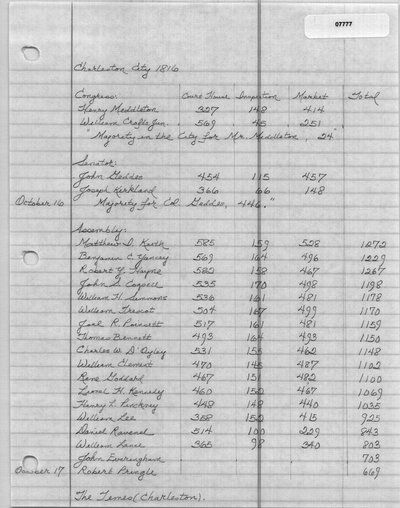 07777
Charleston City 1816
Congress: Court House Inspection Market Total
Henry Meddleton 327 148 414
William Crafts Jun. 569 45 251
"Majority in the City for Mr. Meddleton, 24"
Senator:
John Geddes 454 115 457
Joseph Kirkland 366 66 148
October 16 Majority for Col Geddes, 446."
Assembly:
Matthew D. Keith 585 159 528 1272
Benjamin C. Yancey 569 164 496 1229
Robert Y. Hayne 582 158 467 1267
John S. Cogdell 535 170 498 1198
William H. Simmons 536 161 481 1178
William Trescot 504 167 499 1170
Joel R. Poinsett 517 161 481 1159
Thomas Bennett 493 164 493 1150
Charles W. D'Oyley 531 155 462 1148
William Clement 470 145 487 1102
Rene Goddard 467 151 482 1100
Lionel H. Kennedy 460 152 467 1069
Henry L. Pinckney 448 148 440 1035
William Lee 358 152 415 925
Daniel Ravenel 514 100 229 843
William Lance 365 98 340 803
John Everingham 703
October 17 Robert Pringle 669
The Times (Charleston).